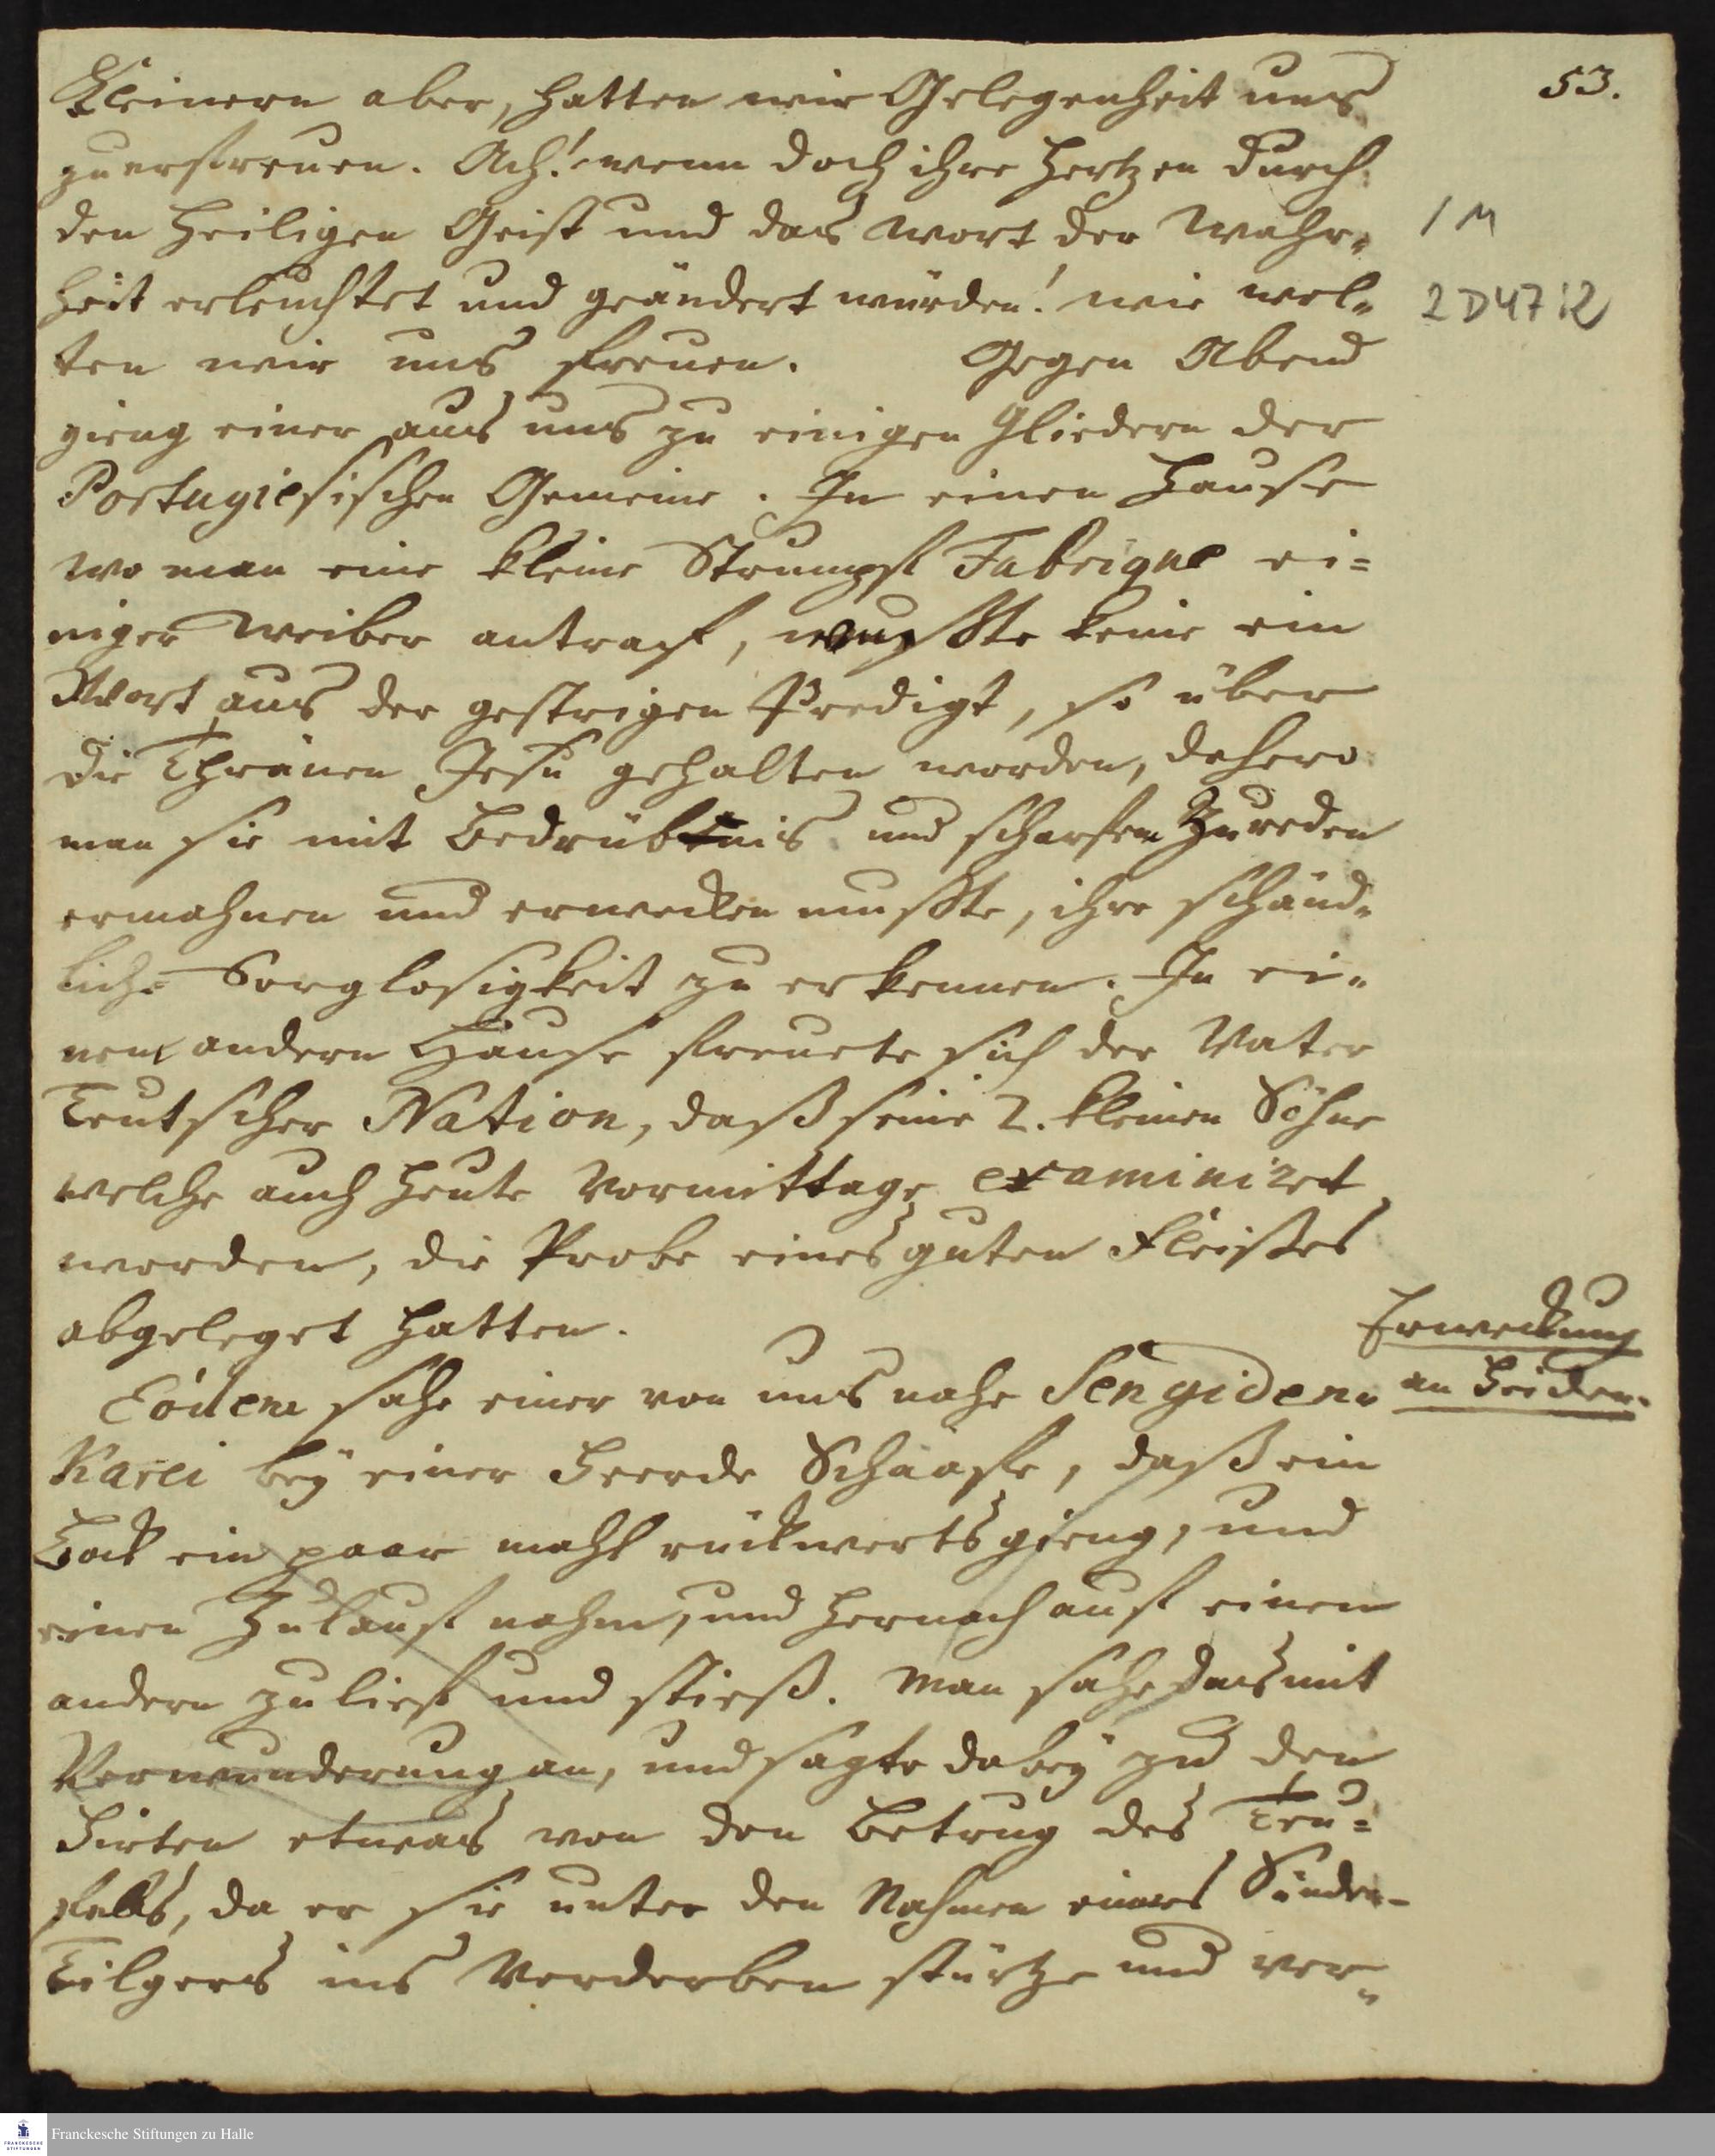 53.
Kleinern aber, hatten wir Gelegenheit uns
zuerfreuen. Ach! wenn doch ihre Hertzen durch
den Heiligen Geist und das Wort der Wahr-
heit erleuchtet und geändert würden! wie wol-
ten wir uns freuen. Gegen Abend
gieng einer aus uns zu einigen Gliedern der
Portugiesischen Gemeine. In einen Hause
wo man eine kleine Strumpf Fabrique ei-
niger Weiber antraf, wußte keine ein
Wort aus der gestrigen Predigt, so über
die Thränen Jesu gehalten worden, dahero
man sie mit Bedrübnis und scharfen Zureden
ermahnen und erwecken mußte, ihre schänd-
liche Sorglosigkeit zu erkennen. In ei-
nem andern Hause freuete sich der Vater
Teutscher Nation, daß seine 2. kleinen Söhne
welche auch heute Vormittage examiniret
worden, die Probe eines guten Fleißes
abgeleget hatten.
Eodem sahe einer von uns nahe Sengiden-
Karei bey einer Heerde Schaafe, daß ein
Bock ein paar mahl rückwerts gieng, und
einen Zulauf nahm, und hernach auf einen
andern zulief und stieß. Man sahe das mit
Verwunderung an, und sagte dabey zu den
Hirten etwas von den Betrug des Teu-
fels, da er sie unter den Nahmen eines Sünden-
Tilgers ins Verderben stürtze und ver-
1 M
2 D47
Erweckung
an Heiden.
Franckesche Stiftungen zu Halle
FRANCKESCHE
STIFTUNGEN